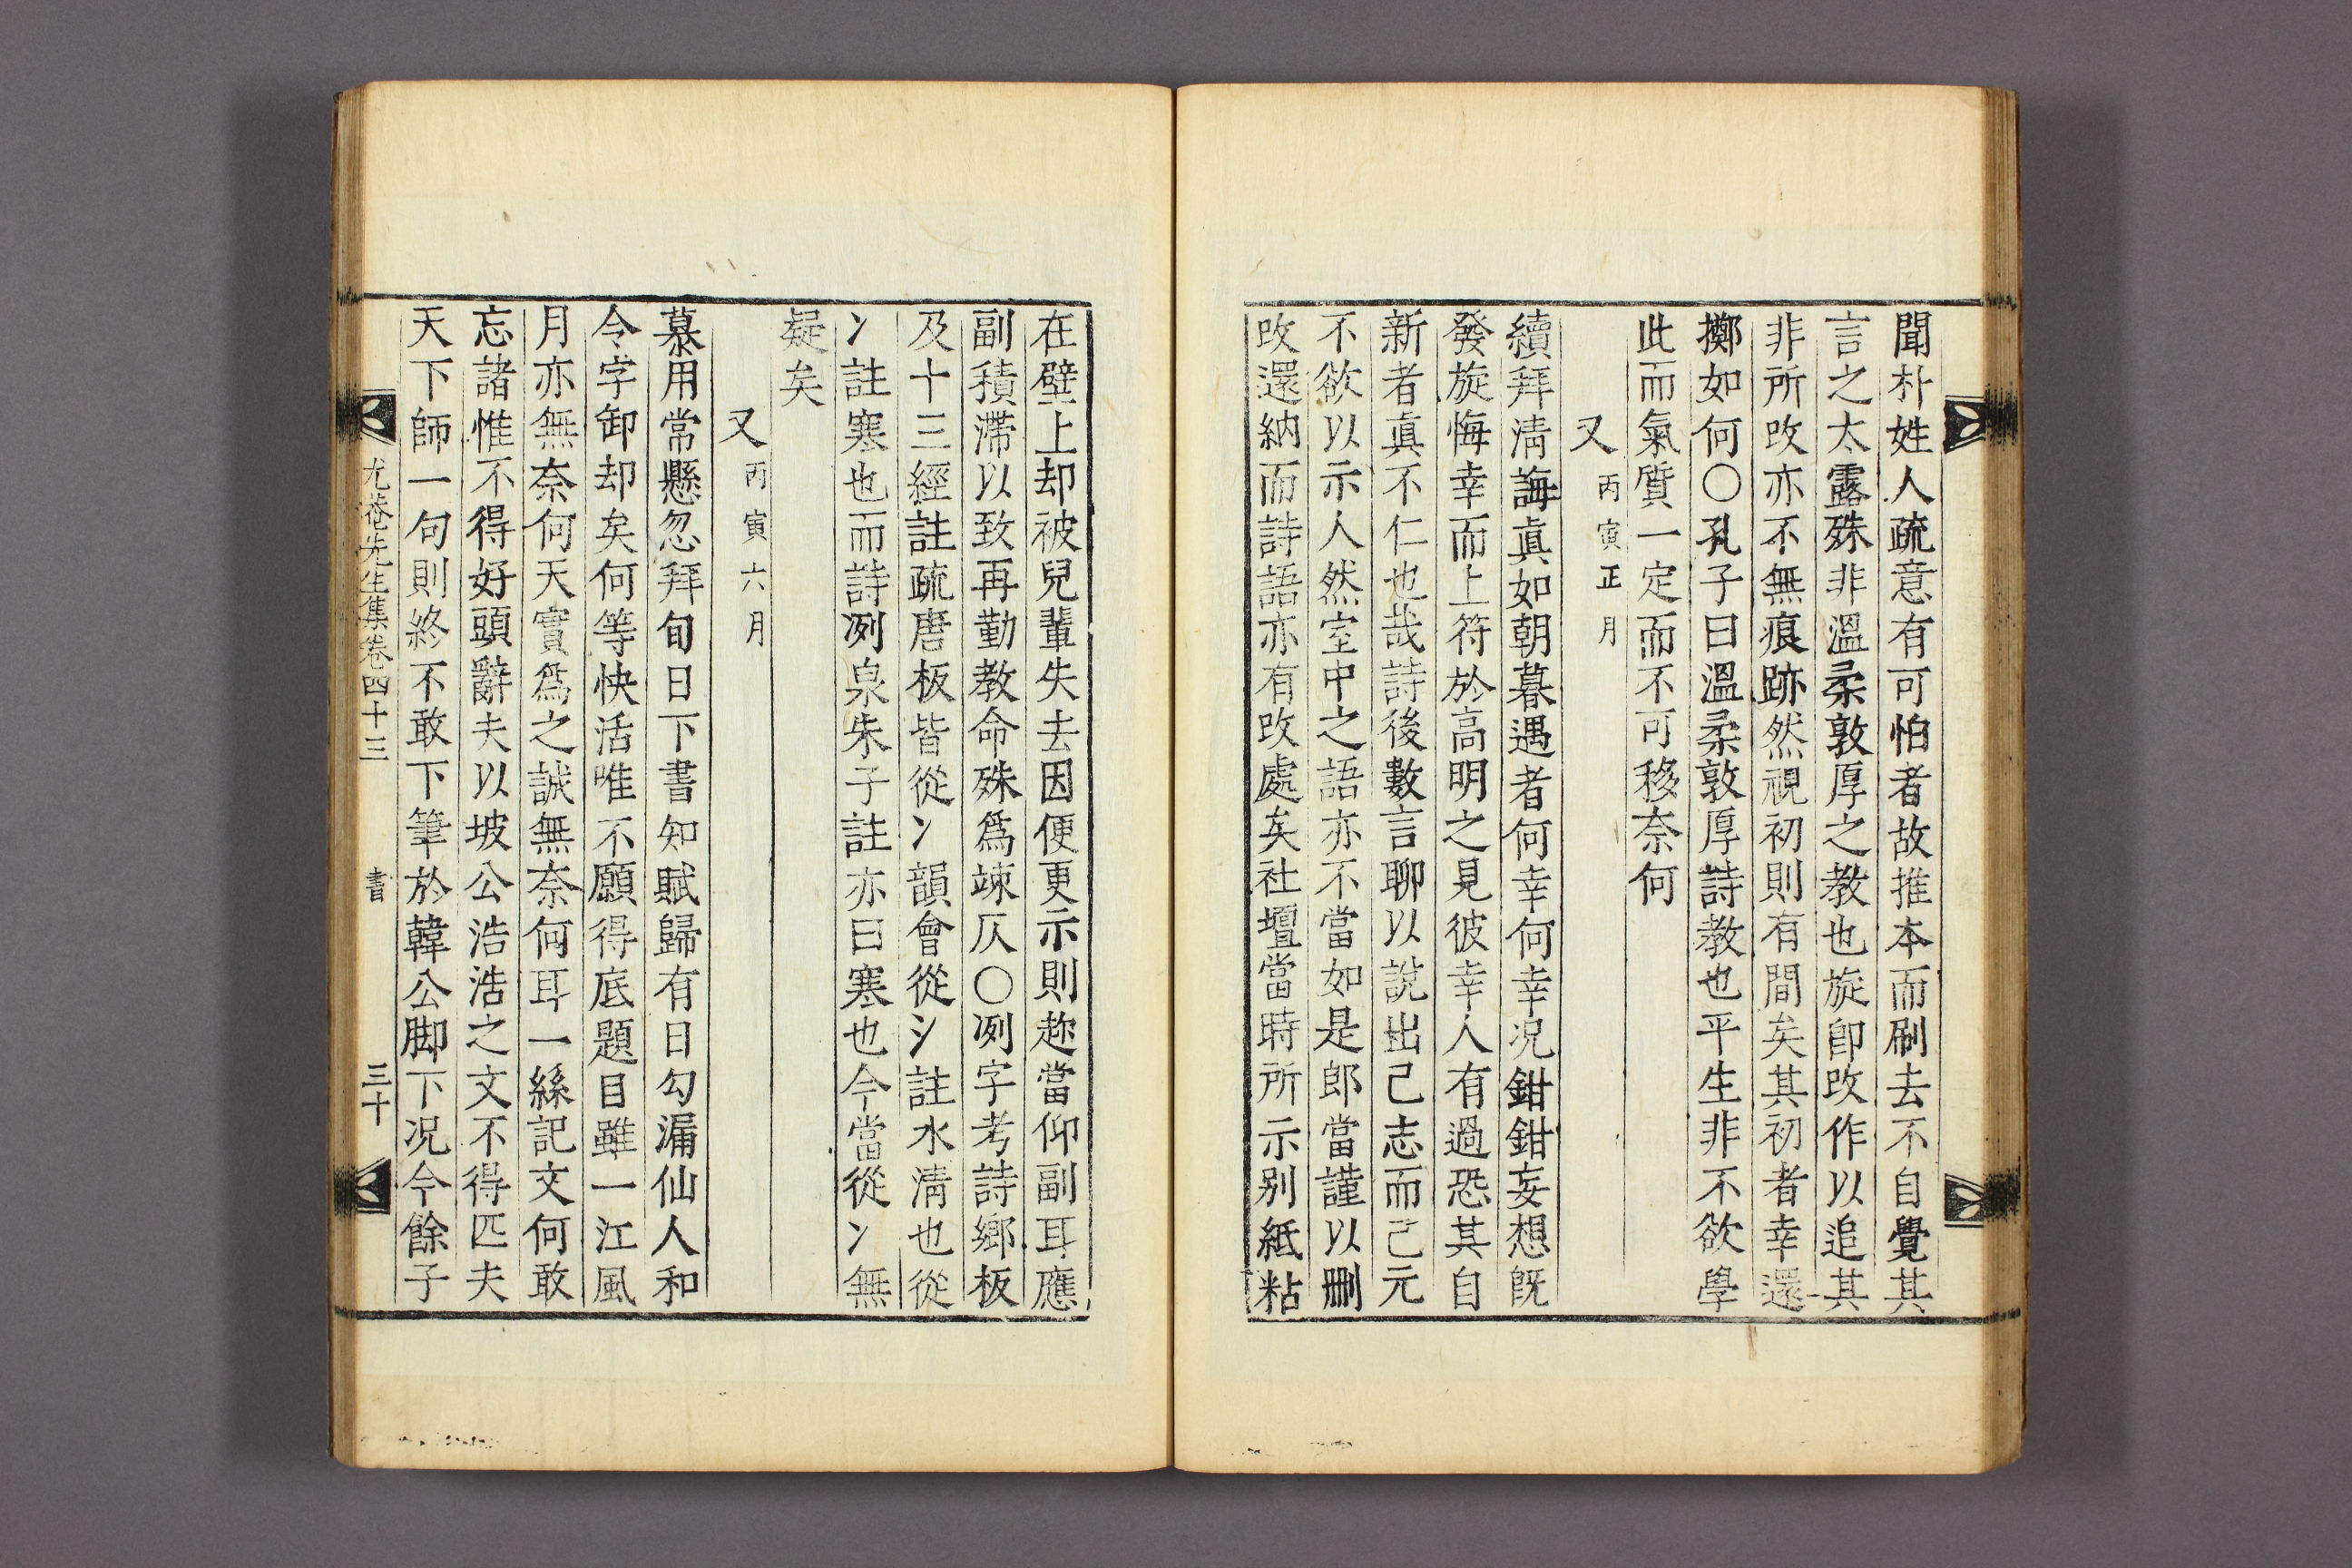 聞朴姓人疏意有可怕者故推本而刷去不自覺其
言之太露殊非溫柔敦厚之教也旋卽改作以追其
非所改亦不無痕跡然視初則有間矣其初者幸還
擲如何○孔子曰溫柔敦厚詩教也平生非不欲學
此而氣質一定而不可移奈何
又丙寅正月
續拜淸誨眞如朝暮遇者何幸何幸况鉗鉗妄想旣
發旋悔幸而上符於高明之見彼幸人有過恐其自
新者眞不仁也哉詩後數言聊以說出己志而己元
不欲以示人然室中之語亦不當如是郎當謹以刪
改還納而詩語亦有改處矣社壇當時所示别紙粘
在壁上却被兒輩失去因便更示則趂當仰副耳應
副積滯以致再勤教命殊爲竦仄○冽字考詩鄉板
及十三經註疏唐板皆從冫韻會從氵註水淸也從
冫註寒也而詩冽泉朱子註亦曰寒也今當從冫無
疑矣
又丙寅六月
慕用常懸忽拜旬日下書知賦歸有日勾漏仙人和
令字卸却矣何等快活唯不願得底題目雖一江風
月亦無奈何天實爲之誠無奈何耳一絲記文何敢
忘諸惟不得好頭辭夫以坡公浩浩之文不得匹夫
天下師一句則終不敢下筆於韓公脚下况今餘子
尤菴先生集卷四十三 書 三十